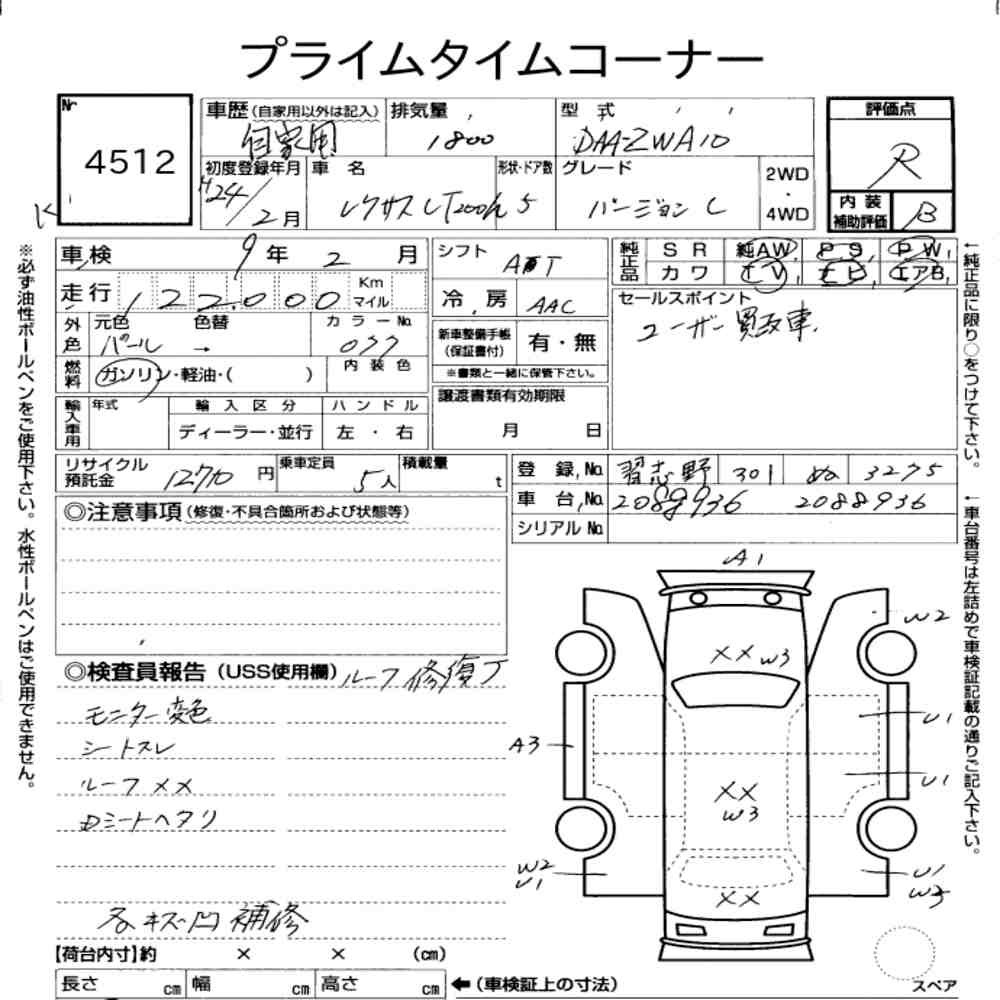 プライムタイムコーナー
Nr
4512
車歴(自家用以外は記入) 自家用
排気量 1800
型式 DAA-ZWA10
評価点 R
内装補助評価 B
初度登録年月 H24/2月
車名 レクサスCT200h
形状・ドア数 5
グレード バージョンC
2WD・4WD
車検 9年2月
シフト AT
純正品 SR 純AW PS PW
カワ TV ナビ エアB
走行 122000 Km マイル
冷房 AAC
セールスポイント
ユーザー買取車
外色 元色 パール 色替 → カラーNo. 077
新車整備手帳(保証書付) 有・無
※書類と一緒に保管下さい。
燃料 ガソリン・軽油・( ) 内装色
譲渡書類有効期限 月 日
輸入車用 年式 輸入区分 ハンドル
ディーラー・並行 左・右
リサイクル預託金 12710円
乗車定員 5人
積載量 t
登録No. 習志野 301 ぬ 3275
車台No. 2088936 2088936
シリアルNo.
◎注意事項(修復・不具合箇所および状態等)
◎検査員報告(USS使用欄) ルーフ修復了
モニター変色
シートスレ
ルーフXX
Dシートヘタリ
各キズ凹補修
【荷台内寸】約 × × (cm)
長さ cm 幅 cm 高さ cm
←(車検証上の寸法)
A1
W2
XX W3
U1
A3
U1
XX
W3
W2
U1
U1
W3
XX
スペア
※必ず油性ボールペンをご使用下さい。水性ボールペンはご使用できません。
←純正品に限り○をつけて下さい。
←車台番号は左詰めで車検証記載の通りご記入下さい。